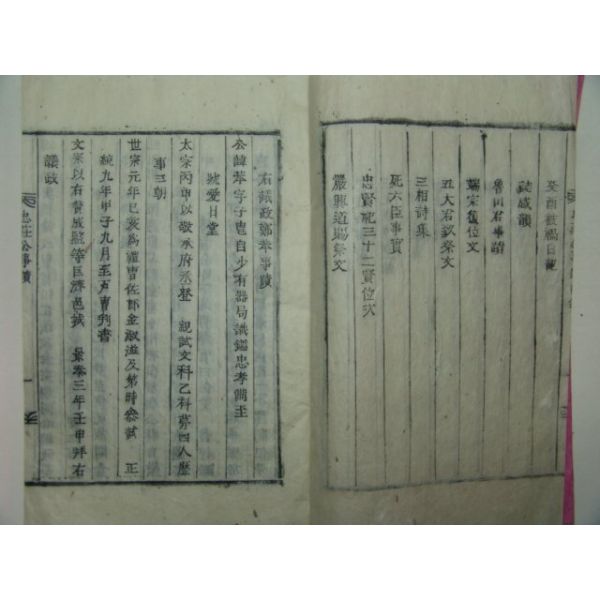 癸酉被禍日記
誌感韻
魯山君事蹟
端宗復位文
五大君致祭文
三相詩集
死六臣事實
忠賢祀三十二賢位次
嚴興道賜祭文
右議政鄭苯事蹟
公諱苯字子㞳自少有器局識鑑忠孝備至
號愛日堂
太宗丙申以敬承府丞登 親試文科乙科第四人歷
事三朝
世宗元年己亥爲禮曹佐郎金淑滋及第時參試 正
統九年甲子九月至戶曹判書
文宗以有贊成監等臣濟邑城 景泰三年壬申拜右
議政
忠莊公事蹟